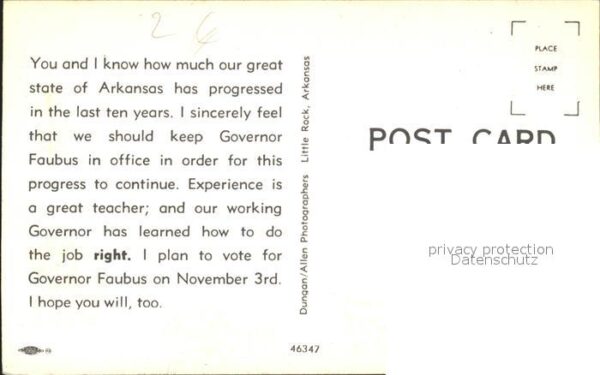 26
You and I know how much our great
state of Arkansas has progressed
in the last ten years. I sincerely feel
that we should keep Governor
Faubus in office in order for this
progress to continue. Experience is
a great teacher; and our working
Governor has learned how to do
the job right. I plan to vote for
Governor Faubus on November 3rd.
I hope you will, too.
Dungan/Allen Photographers Little Rock, Arkansas
46347
PLACE
STAMP
HERE
POST CARD
privacy protection
Datenschutz